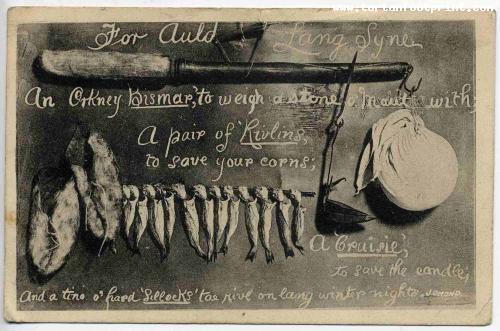 www.tartanfootprint.com
For Auld Lang Syne
An Orkney Bismar, to weigh a stone o' maut with;
A pair of 'Rivlins,
to save your corns;
A Cruisie,
to save the candle;
And a tino' o' hard 'Sillocks' tae rive on lang winter nights.